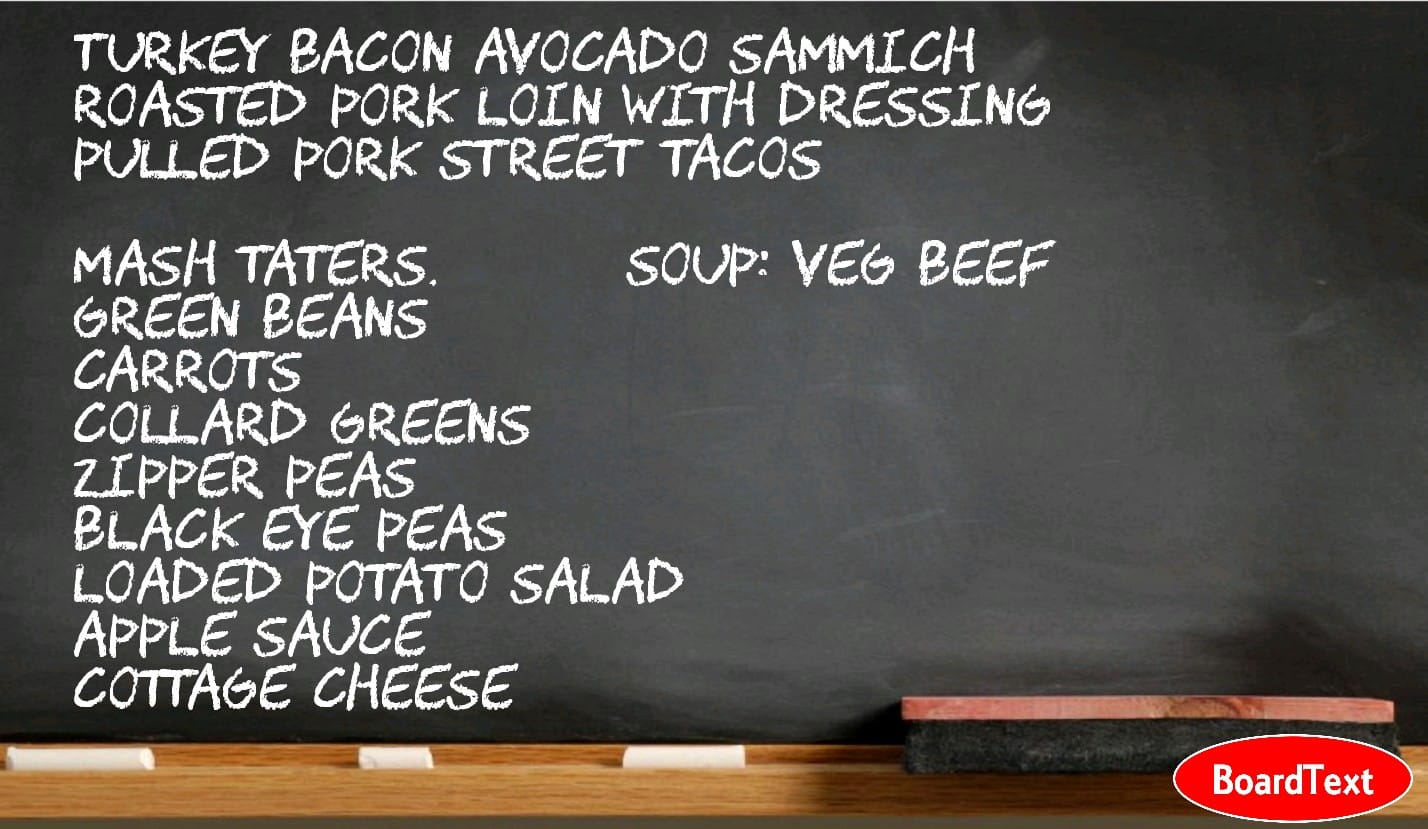 TURKEY BACON AVOCADO SAMMICH
ROASTED PORK LOIN WITH DRESSING
PULLED PORK STREET TACOS
MASH TATERS.
SOUP: VEG BEEF
GREEN BEANS
CARROTS
COLLARD GREENS
ZIPPER PEAS
BLACK EYE PEAS
LOADED POTATO SALAD
APPLE SAUCE
COTTAGE CHEESE
BoardText